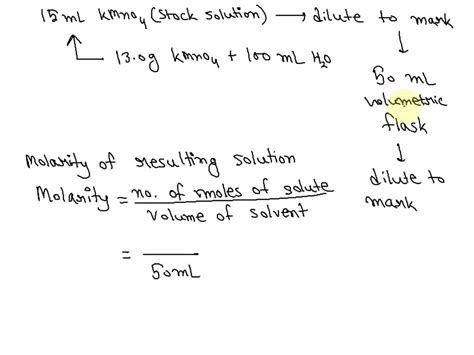 15mL KMnO4 (stock solution) → dilute to mark
↓
13.0g KMnO4 + 100 mL H2O
50 mL
volumetric
flask
↓
dilute to
mark
Molarity of resulting solution
Molarity = no. of moles of solute
volume of solvent
=
50mL